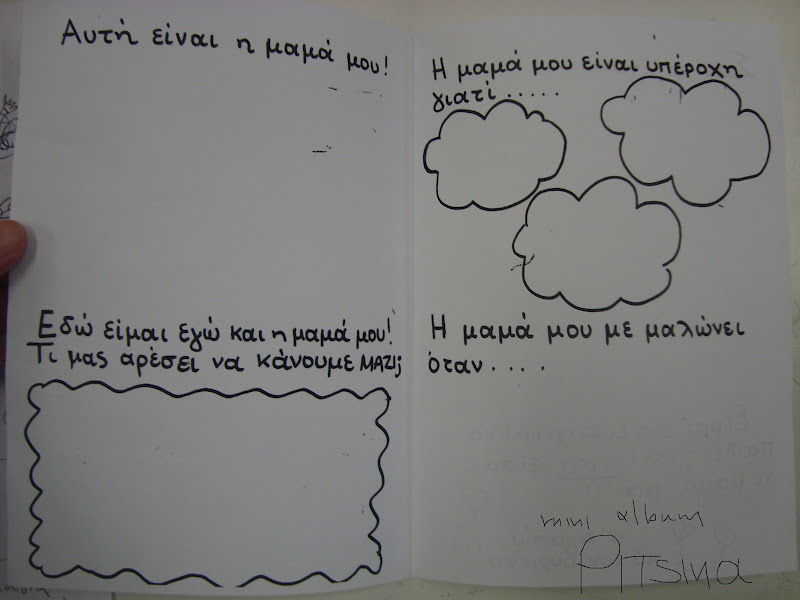 Αυτή είναι η μαμά μου!
Εδώ είμαι εγώ και η μαμά μου!
Τι μας αρέσει να κάνουμε ΜΑΖΙ;
Η μαμά μου είναι υπέροχη
γιατί .....
Η μαμά μου με μαλώνει
όταν ....
mini album
PITsina